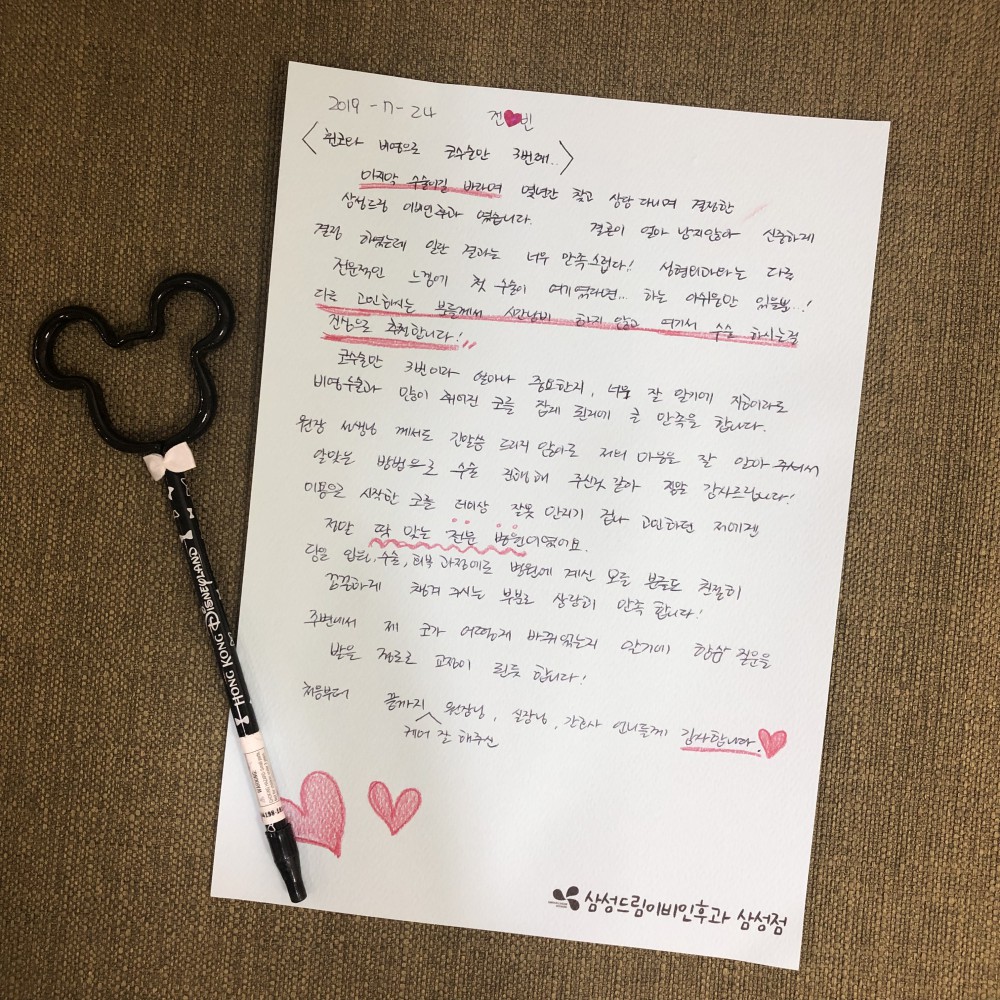 2019 - 7 - 24 전♥빈
<휜코와 비염으로 코수술만 3번째..>
마지막 수술이길 바라며 몇년간 찾고 상담 다니며 결정한
삼성드림 이비인후과 였습니다. 결혼이 얼마 남지않아 신중하게
결정 하였는데 일단 결과는 너무 만족스럽다! 성형외과와는 다른
전문적인 느낌에 첫 수술이 여기였다면... 하는 아쉬움만 있을뿐...!
다른 고민하시는 분들께서 시간낭비 하지 않고 여기서 수술 하시는걸
진심으로 추천합니다!
코수술만 3번이라 얼마나 중요한지, 너무 잘 알기에 지금이라도
비염수술과 많이 휘어진 코를 잡게 된거에 큰 만족을 합니다.
원장 선생님 께서도 긴말씀 드리지 않아도 저의 마음을 잘 알아 주셔서
알맞은 방법으로 수술 진행해 주신것 같아 정말 감사드립니다!
미용으로 시작한 코를 더이상 잘못 만지기 겁나 고민하던 저에겐
정말 딱 맞는 전문 병원이였어요.
당일 입원, 수술, 회복 과정에도 병원에 계신 모든 분들도 친절히
꼼꼼하게 챙겨 주시는 부분도 상당히 만족 합니다!
주변에서 제 코가 어떻게 바뀌었는지 알기에 항상 질문을
받을 정도로 교정이 된듯 합니다!
처음부터 끝까지 케어 잘 해주신 원장님, 실장님, 간호사 언니들께 감사합니다.
삼성드림이비인후과 삼성점
HONG KONG DISNEYLAND
WARNING